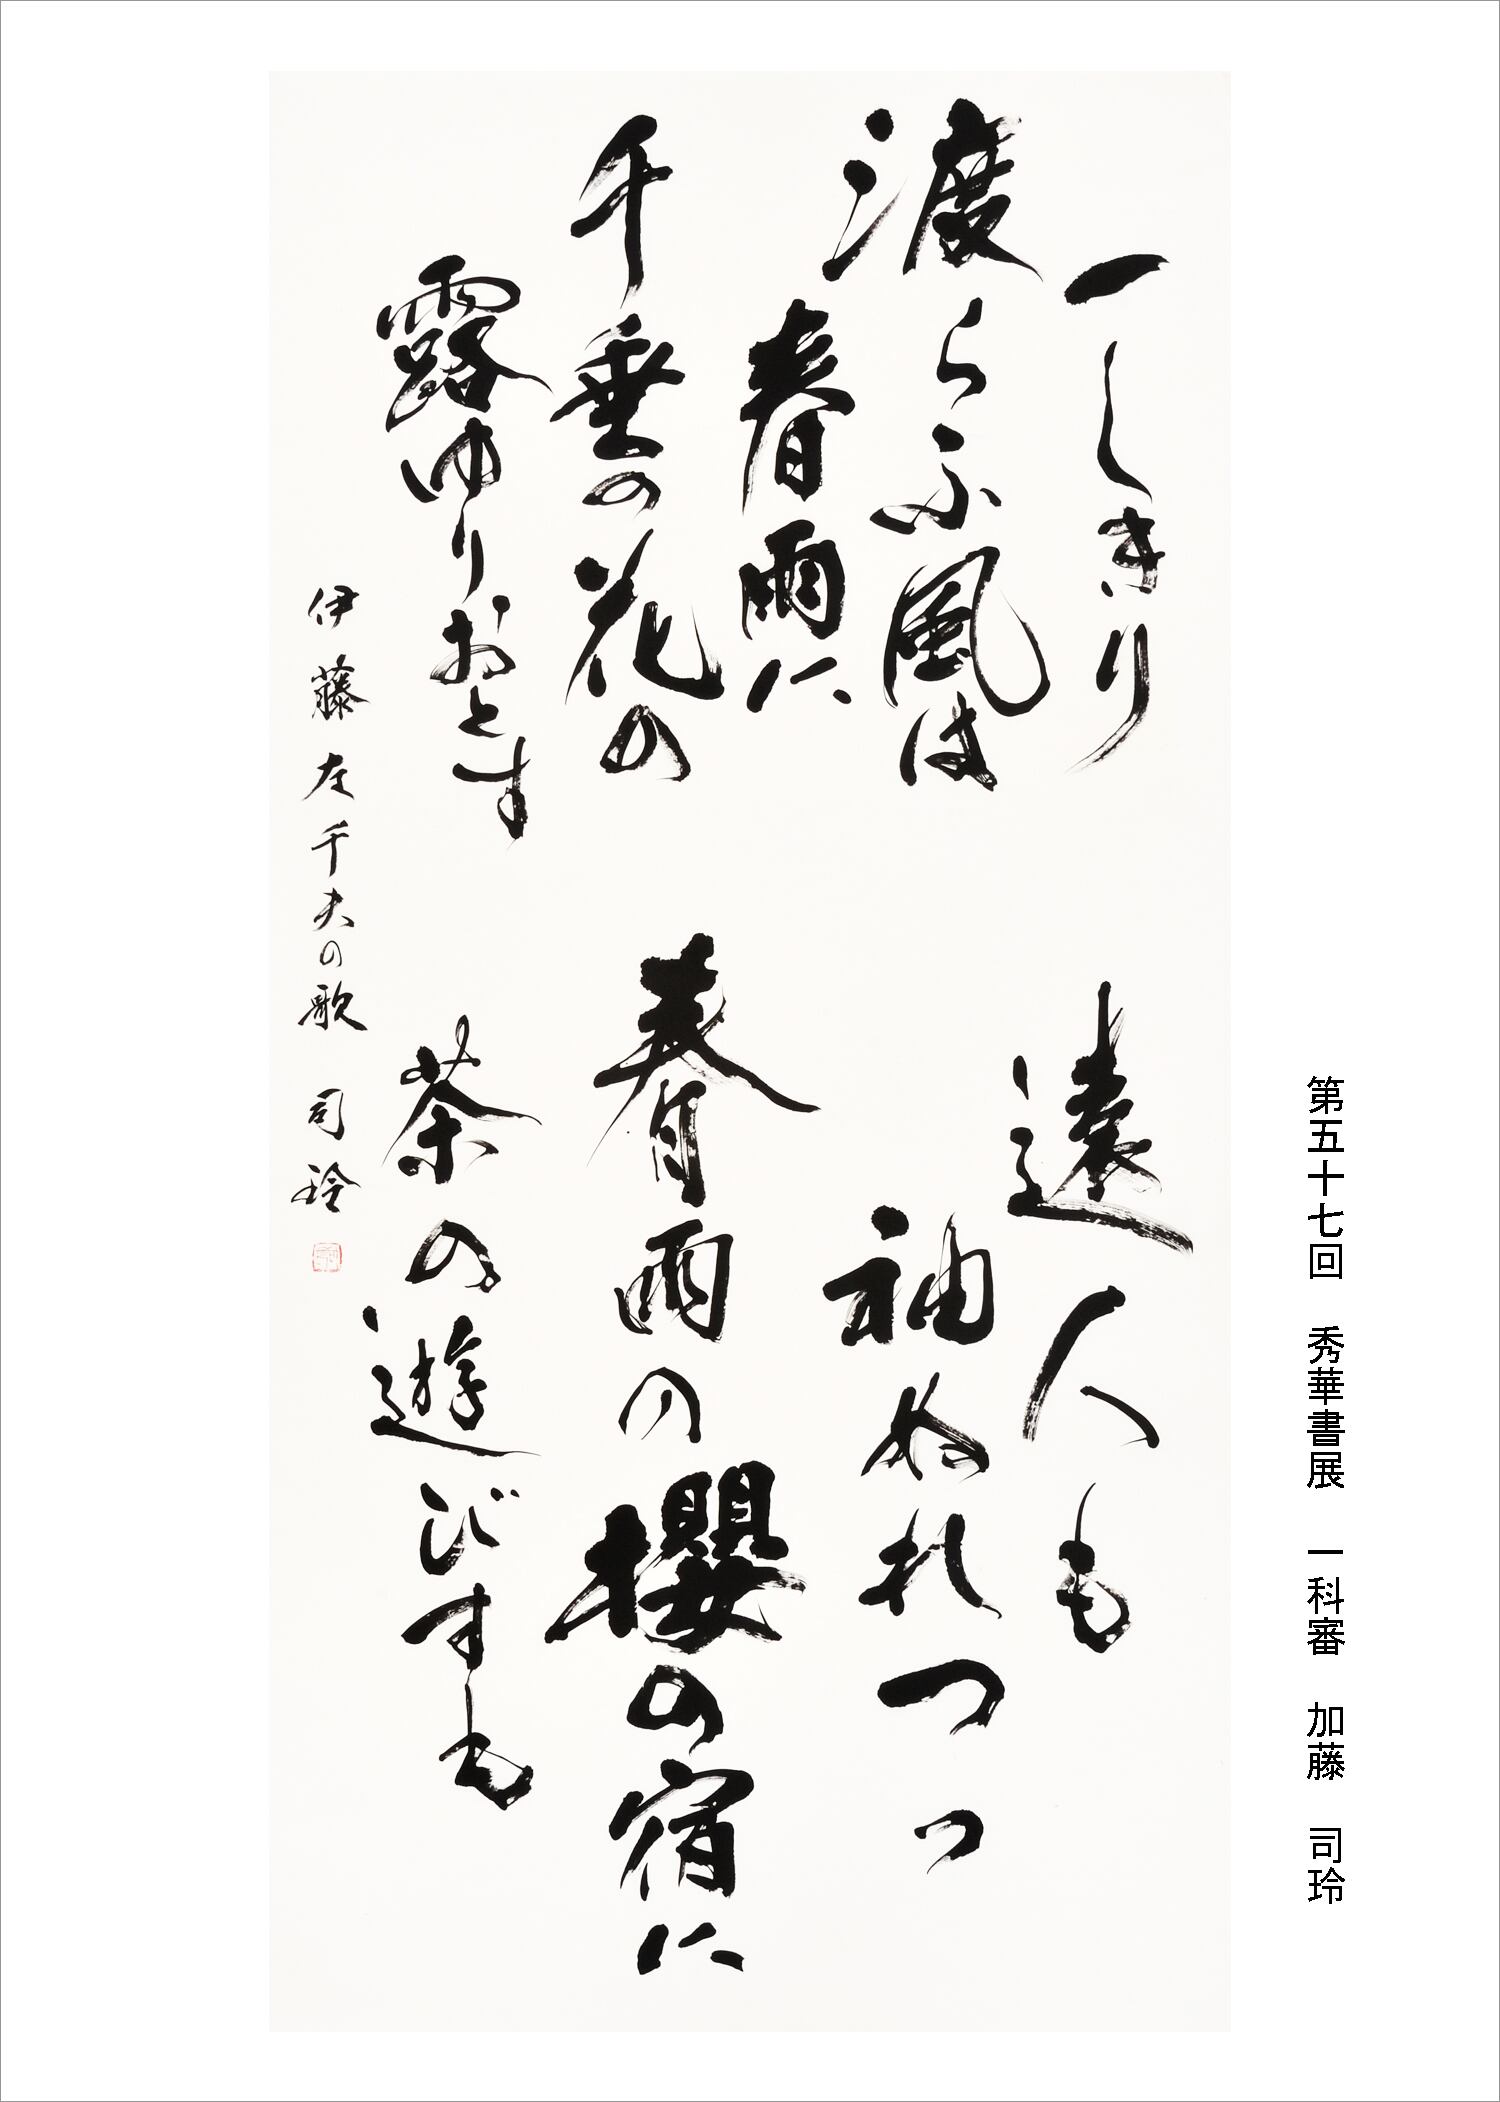 一しきり
渡らふ風は
春雨に
千垂の花の
露ゆりおとす
遠人も
袖ぬれつつ
春雨の
櫻の宿に
茶の遊びすも
伊藤左千夫の歌 司玲
第五十七回 秀華書展 一科審 加藤 司玲